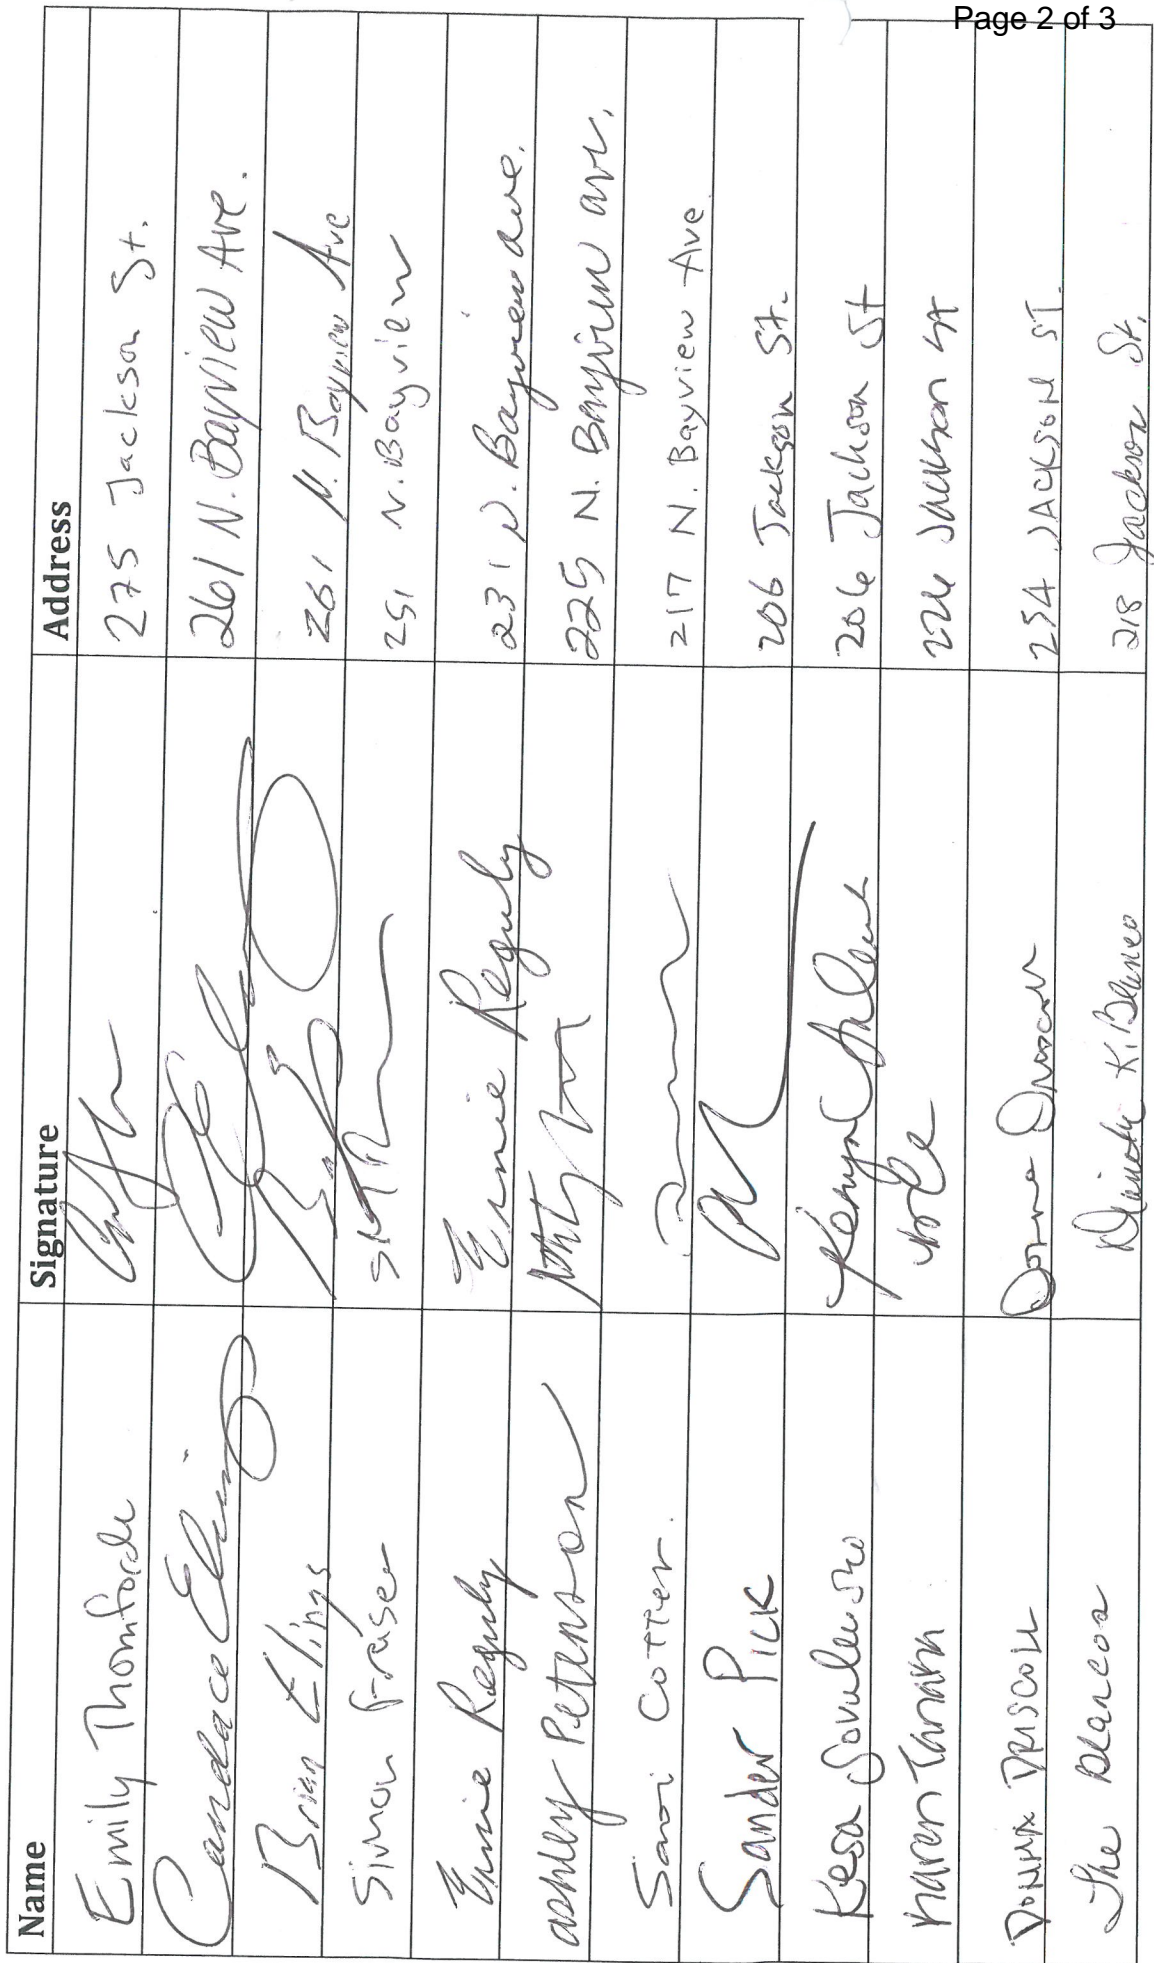 Page 2 of 3
Name Signature Address
Emily Thomforde 275 Jackson St.
Candace Elings 261 N. Bayview Ave.
Brian Elings 261 N. Bayview Ave
Simon Fraser 251 N. Bayview
Ernie Reguly Ernie Reguly 231 N. Bayview ave.
ashley Peterson 225 N. Bayview ave.
Sami Cotter. 217 N. Bayview Ave
Sander Pick 206 Jackson St.
206 Jackson St
Karen 226 Jackson St
DONNA DRISCOLL Donna Driscoll 254 JACKSON ST.
The Blancos K. Blanco 218 Jackson St.